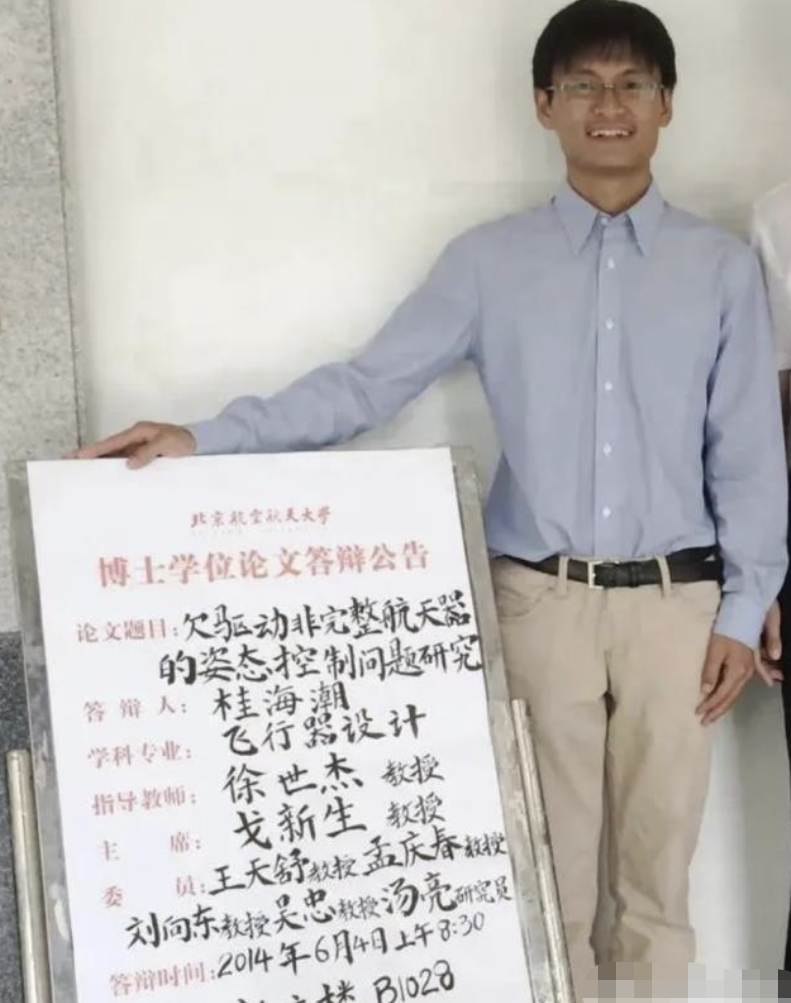 北京航空航天大学
博士学位论文答辩公告
论文题目:欠驱动非完整航天器
的姿态控制问题研究
答辩人:桂海潮
学科专业:飞行器设计
指导教师:徐世杰 教授
主席:戈新生 教授
委员:王天舒教授 孟庆春教授
刘向东教授 吴忠教授 汤亮研究员
答辩时间:2014年6月4日上午8:30
楼 B1028